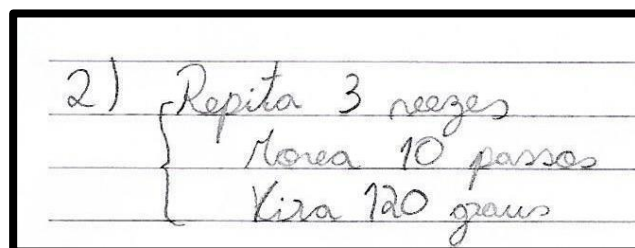 2) Repita 3 veezes
Mova 10 passos
Vira 120 graus